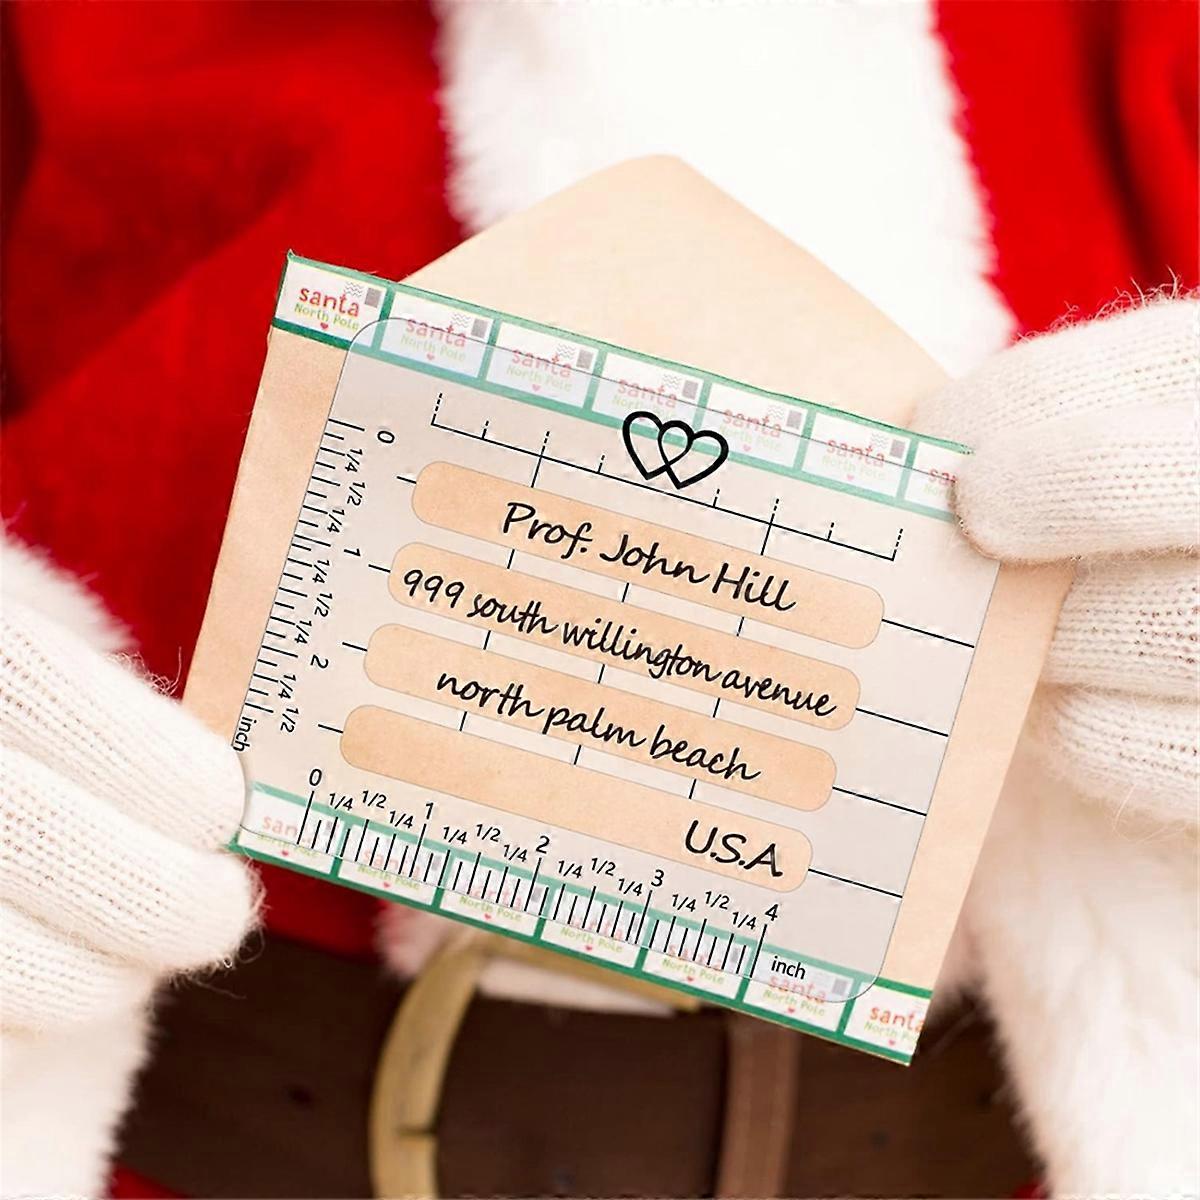 santa santa santa santa santa santa
North Pole North Pole North Pole North Pole North Pole North Pole
0 1/4 1/2 1/4 1 1/4 1/2 1/4 2 1/4 1/2 inch
Prof. John Hill
999 south willington avenue
north palm beach
U.S.A
0 1/4 1/2 1/4 1 1/4 1/2 1/4 2 1/4 1/2 1/4 3 1/4 1/2 1/4 4
inch
santa santa
North Pole North Pole North Pole North Pole North Pole